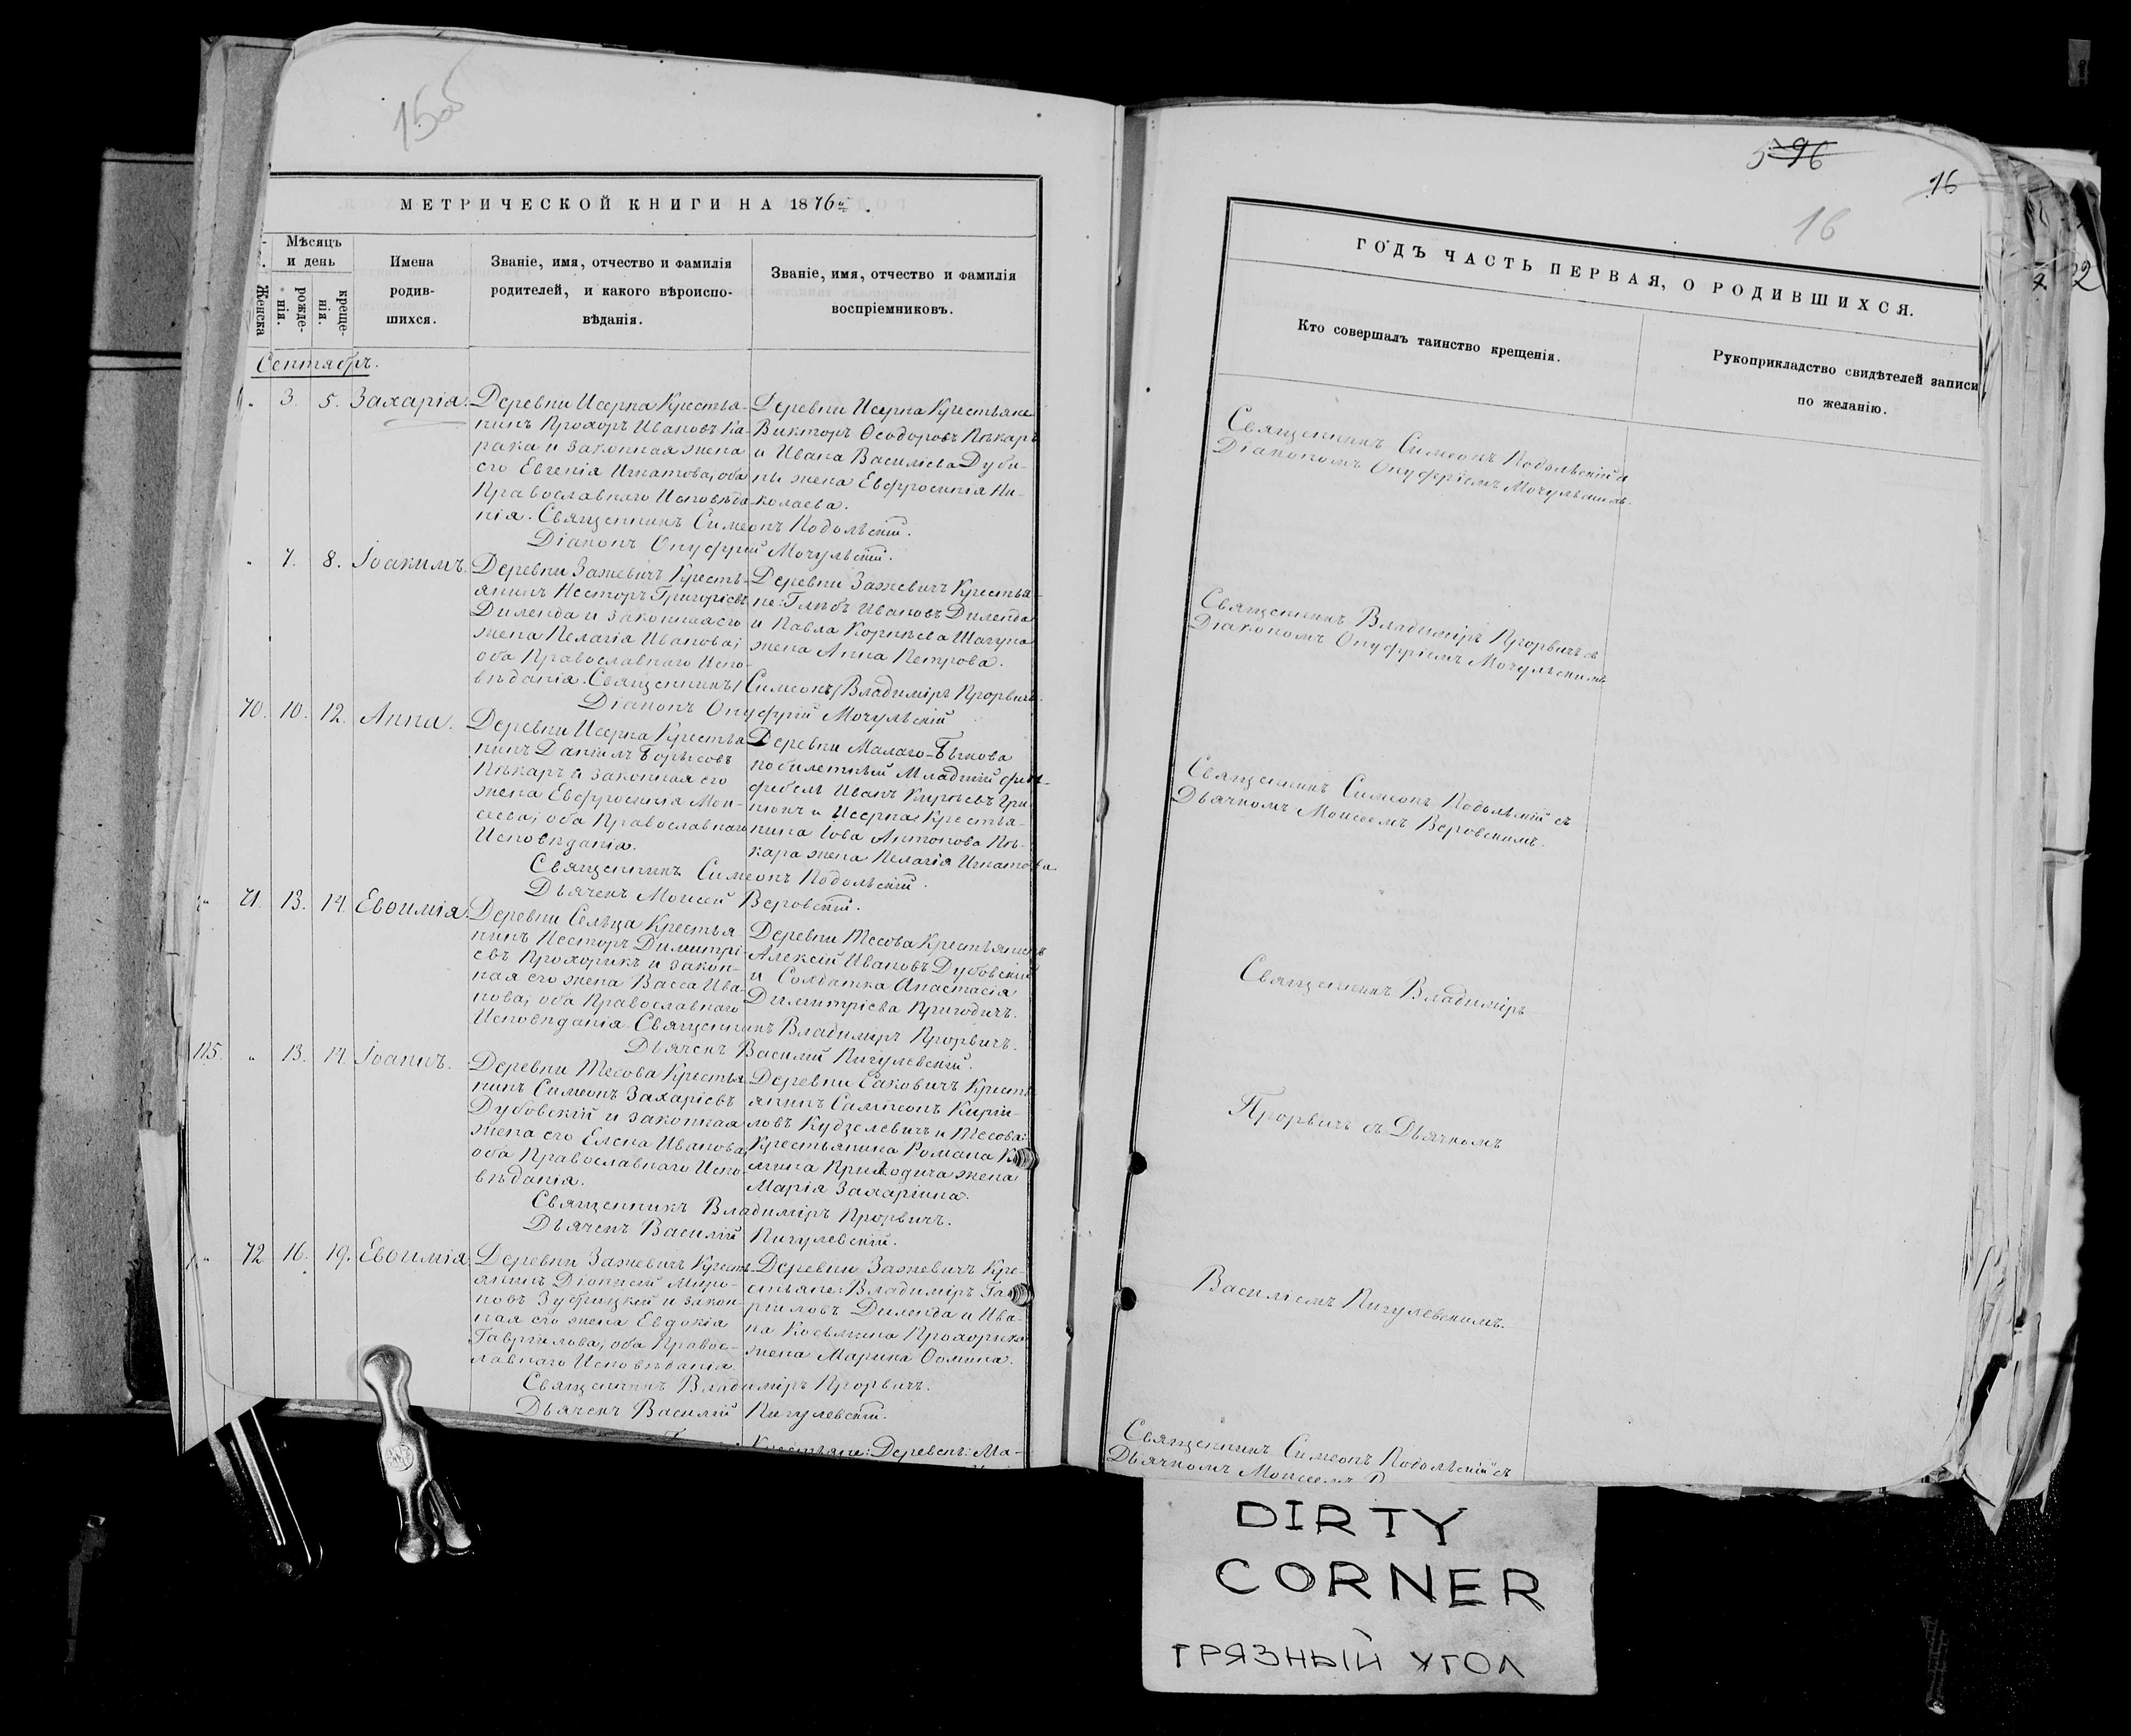 15об
МЕТРИЧЕСКОЙ КНИГИ НА 1876й.
Женска
Мѣсяцъ и день
рожде-нія.
креще-нія.
Имена родив-шихся.
Званіе, имя, отчество и фамилія родителей, и какого вѣроиспо-вѣданія.
Званіе, имя, отчество и фамилія воспріемниковъ.
Сентябрь.
3. 5. Захарія.
Деревни Исерна Крестья-
нинъ Прохоръ Ивановъ Ка-
рака и законная жена
его Евгенія Игнатова, оба
Православнаго Исповѣда-
нія. Священникъ Симеонъ Подольскій.
Діаконъ Онуфрій Мочульскій.
Деревни Исерна Крестьяне
Викторъ Ѳеодоровъ Пѣкаръ
и Ивана Василіева Дуби-
ны жена Евфросинія Ни-
колаева.
7. 8. Іоакимъ.
Деревни Зажевичъ Кресть-
янинъ Несторъ Григоріевъ
Диленда и законная его
жена Пелагія Иванова;
оба Православнаго Испо-
вѣданія. Священникъ Симеонъ Владиміръ Прорвичъ.
Діаконъ Онуфрій Мочульскій
Деревни Зажевичъ Крестья-
не: Глѣбъ Ивановъ Диленда
и Павла Корнѣева Шагуна
жена Анна Петрова.
70. 10. 12. Анна.
Деревни Исерна Крестья
нинъ Даніилъ Борисовъ
Пѣкаръ и законная его
жена Евфросинія Мои-
сеева; оба Православнаго
Исповѣданія.
Священникъ Симеонъ Подольскій.
Дьячекъ Моисей Веровскій.
Деревни Малаго-Быкова
младшій фельд-
фебель Иванъ
и Исерна Крестья-
нина Іова Антонова Пѣ-
кара жена Пелагія Игнатова
71. 13. 14. Евѳимія.
Деревни Сельца Крестья
нинъ Несторъ Димитрі-
евъ Прохорикъ и закон-
ная его жена Васса Ива-
нова, оба Православнаго
Исповѣданія. Священникъ Владиміръ Прорвичъ.
Дьячекъ Василій Пигулевскій.
Деревни Тесова Крестьянинъ
Алексій Ивановъ Дубовскій
и Солдатка Анастасія
Димитріева Пригодичъ.
115. 13. 14. Іоаннъ.
Деревни Тесова Крестья
нинъ Симеонъ Захаріевъ
Дубовскій и законная
жена его Елена Иванова,
оба Православнаго Испо-
вѣданія.
Священникъ Владиміръ Прорвичъ.
Дьячекъ Василій Пигулевскій.
Деревни Саковичъ Кресть
янинъ Сампсонъ Кирил-
ловъ Кудзелевичъ и Тесова:
Крестьянина Романа
жена
Марія Захаріина.
72 16. 19. Евѳимія
Деревни Зажевичъ Кресть-
янинъ Діонисій Миро-
новъ Зубрицкій и закон-
ная его жена Евдокія
Гавріилова, оба Правос-
лавнаго Исповѣданія.
Священникъ Владиміръ Прорвичъ.
Дьячекъ Василій Пигулевскій.
Деревни Зажевичъ Кре-
стьяне: Владиміръ Гав
ріиловъ Диленда и Ива-
на Косьмина Прохорика
жена Марина Ѳомина.
Крестьяне: Деревень: Ма-
596
16
16
ГОДЪ ЧАСТЬ ПЕРВАЯ, О РОДИВШИХСЯ.
Кто совершалъ таинство крещенія.
Рукоприкладство свидѣтелей записи
по желанію.
Священникъ Симеонъ Подольскій съ
Діакономъ Онуфріемъ Мочульскимъ.
Священникъ Владиміръ Прорвичъ съ
Діакономъ Онуфріемъ Мочульскимъ
Священникъ Симеонъ Подольскій съ
Дьячкомъ Моисеемъ Веровскимъ.
Священникъ Владиміръ
Прорвичъ съ Дьячкомъ
Василіемъ Пигулевскимъ.
Священникъ Симеонъ Подольскій съ
Дьячкомъ Моисеемъ
DIRTY
CORNER
ГРЯЗНЫЙ УГОЛ